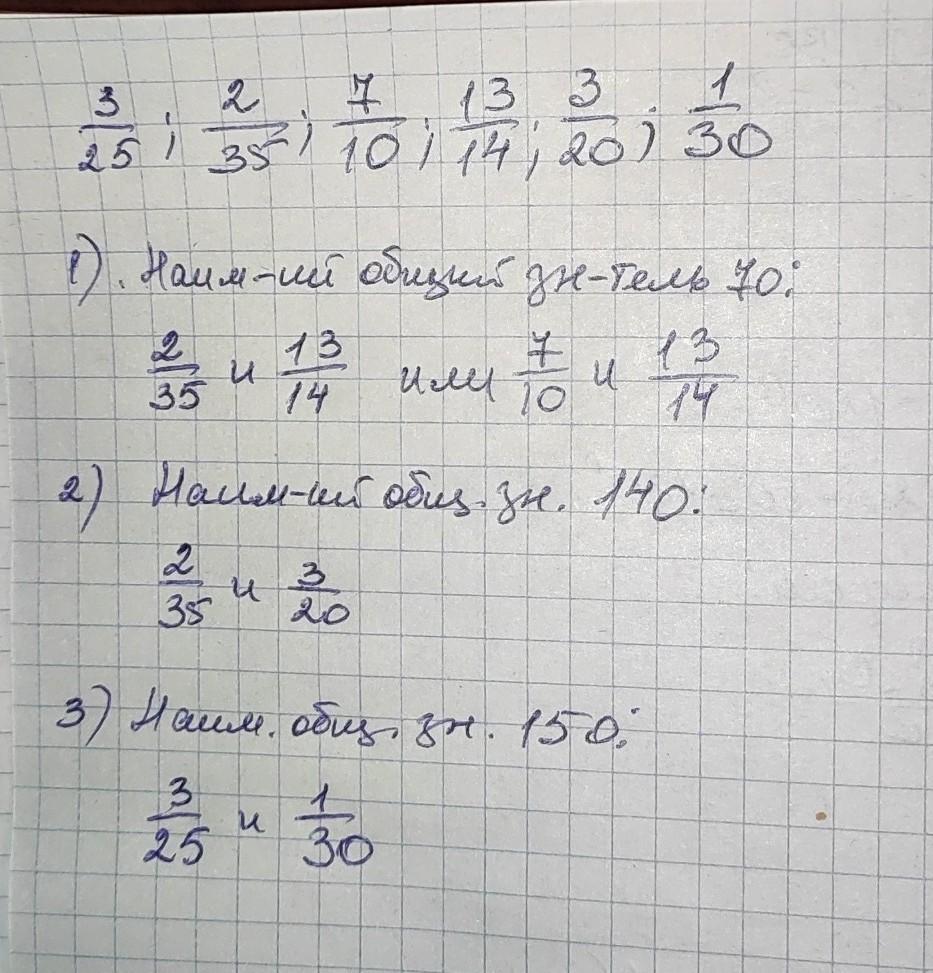 3/25 ; 2/35 ; 7/10 ; 13/14 ; 3/20 ; 1/30
1). Наим-ий общий зн-тель 70:
2/35 и 13/14 или 7/10 и 13/14
2) Наим-ий общ. зн. 140:
2/35 и 3/20
3) Наим. общ. зн. 150:
3/25 и 1/30